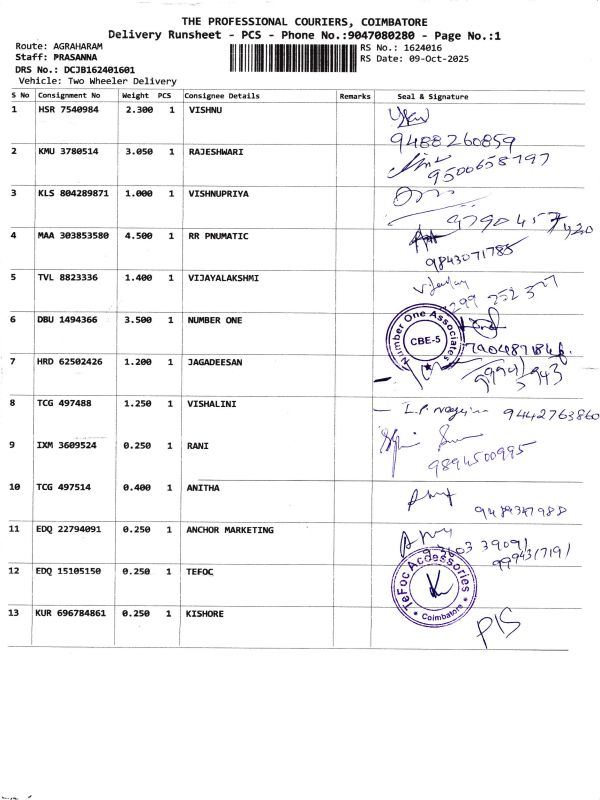 THE PROFESSIONAL COURIERS, COIMBATORE
Delivery Runsheet - PCS - Phone No.:9047080280 - Page No.:1
Route: AGRAHARAM
RS No.: 1624016
Staff: PRASANNA
RS Date: 09-Oct-2025
DRS No.: DCJB162401601
Vehicle: Two Wheeler Delivery
S No Consignment No Weight PCS Consignee Details Remarks Seal & Signature
1 HSR 7540984 2.300 1 VISHNU
9488260859
2 KMU 3780514 3.050 1 RAJESHWARI
9500658797
3 KLS 804289871 1.000 1 VISHNUPRIYA
4 MAA 303853580 4.500 1 RR PNUMATIC
9843071785
5 TVL 8823336 1.400 1 VIJAYALAKSHMI
6 DBU 1494366 3.500 1 NUMBER ONE
Number One Associates
CBE-5
7 HRD 62502426 1.200 1 JAGADEESAN
8 TCG 497488 1.250 1 VISHALINI
9442763860
9 IXM 3609524 0.250 1 RANI
9894500995
10 TCG 497514 0.400 1 ANITHA
11 EDQ 22794091 0.250 1 ANCHOR MARKETING
12 EDQ 15105150 0.250 1 TEFOC
TeFoc Accessories
Coimbatore
13 KUR 696784861 0.250 1 KISHORE
P15